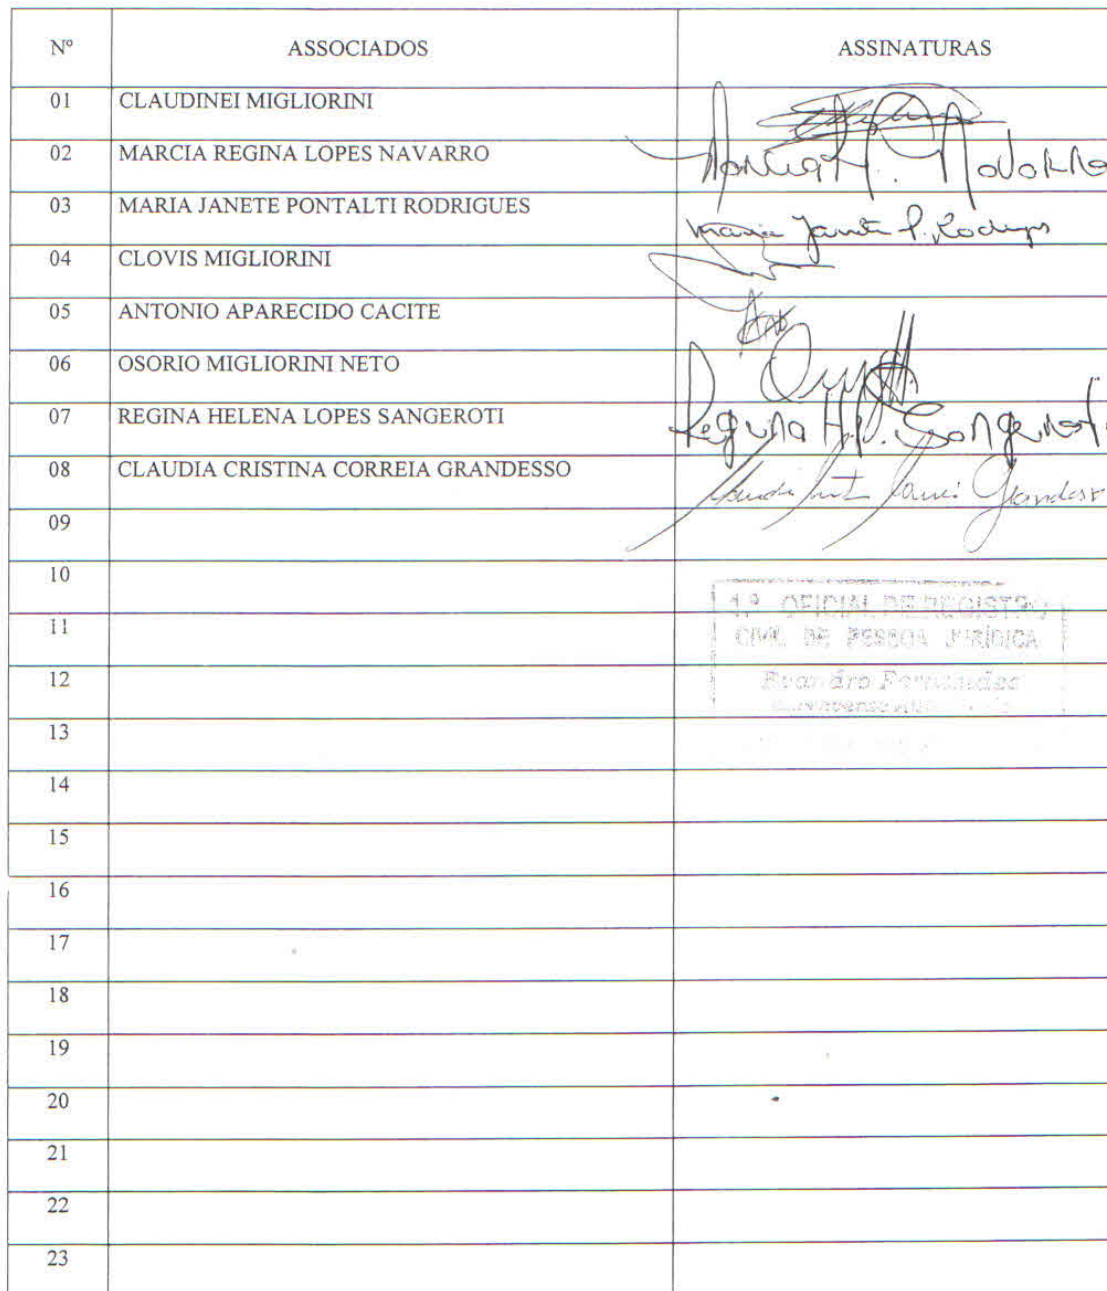 Nº ASSOCIADOS ASSINATURAS
01 CLAUDINEI MIGLIORINI
02 MARCIA REGINA LOPES NAVARRO Marcia R. Navarro
03 MARIA JANETE PONTALTI RODRIGUES Maria Janete P. Rodrigues
04 CLOVIS MIGLIORINI
05 ANTONIO APARECIDO CACITE
06 OSORIO MIGLIORINI NETO
07 REGINA HELENA LOPES SANGEROTI Regina H. L. Sangeroti
08 CLAUDIA CRISTINA CORREIA GRANDESSO
09
10
1.º OFICIAL DE REGISTRO
11
CIVIL DE PESSOA JURÍDICA
12 Evandro Fernandes
13
14
15
16
17
18
19
20
21
22
23